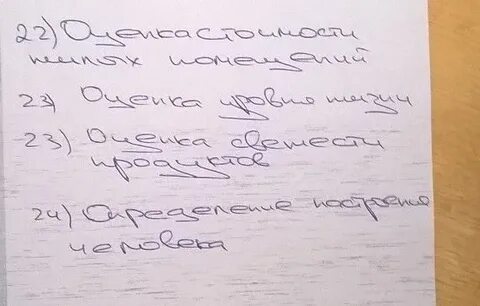 22) Оценка стоимости
жилых помещений
23) Оценка уровня жизни
23) Оценка свежести
продуктов
24) Определение настроения
человека